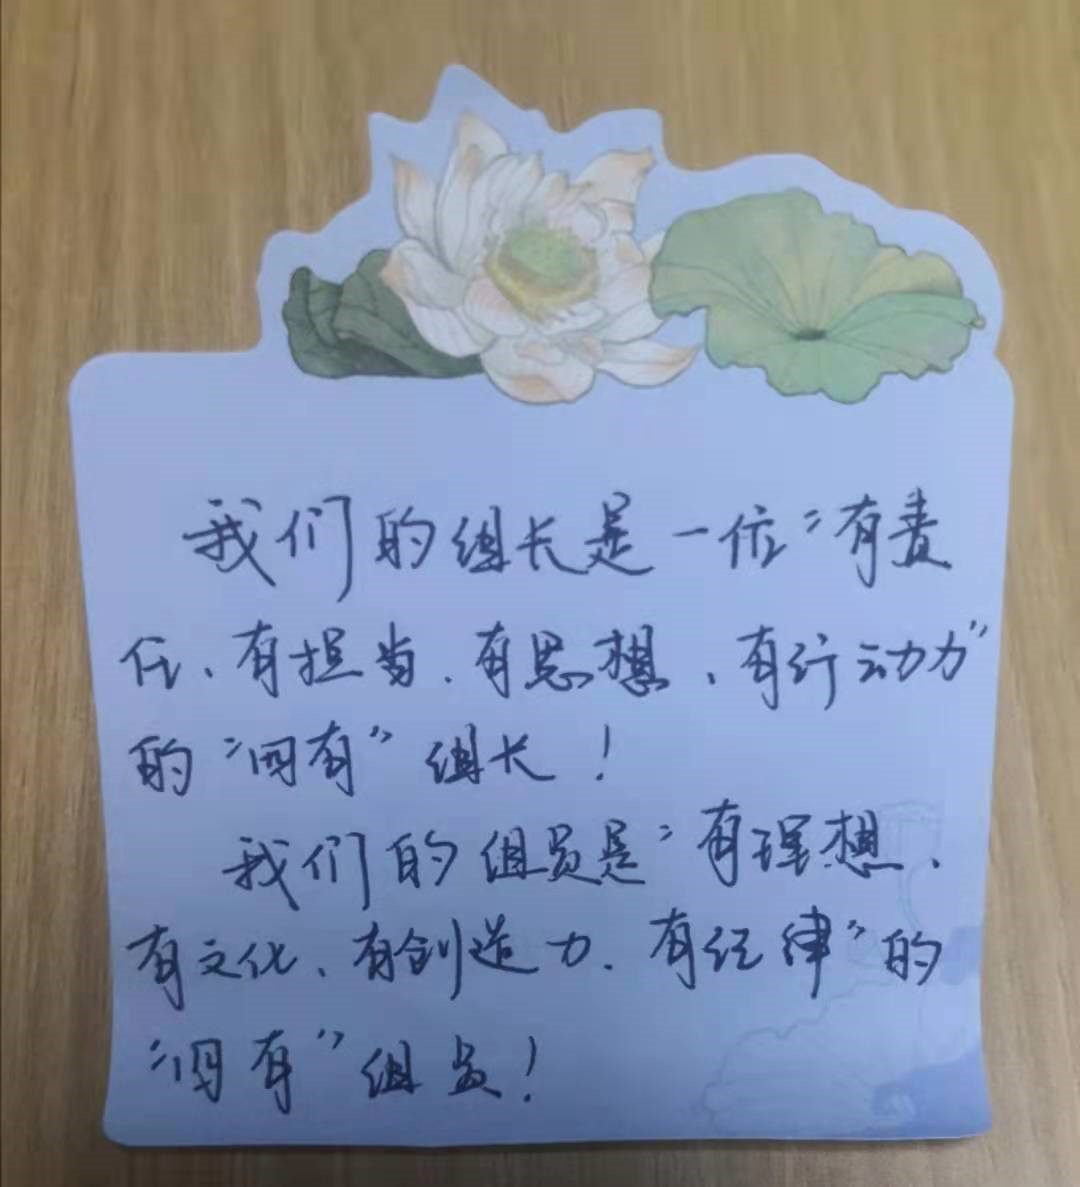 我们的组长是一位“有责
任、有担当、有思想、有行动力”
的“四有”组长！
我们的组员是“有理想、
有文化、有创造力、有纪律”的
“四有”组员！